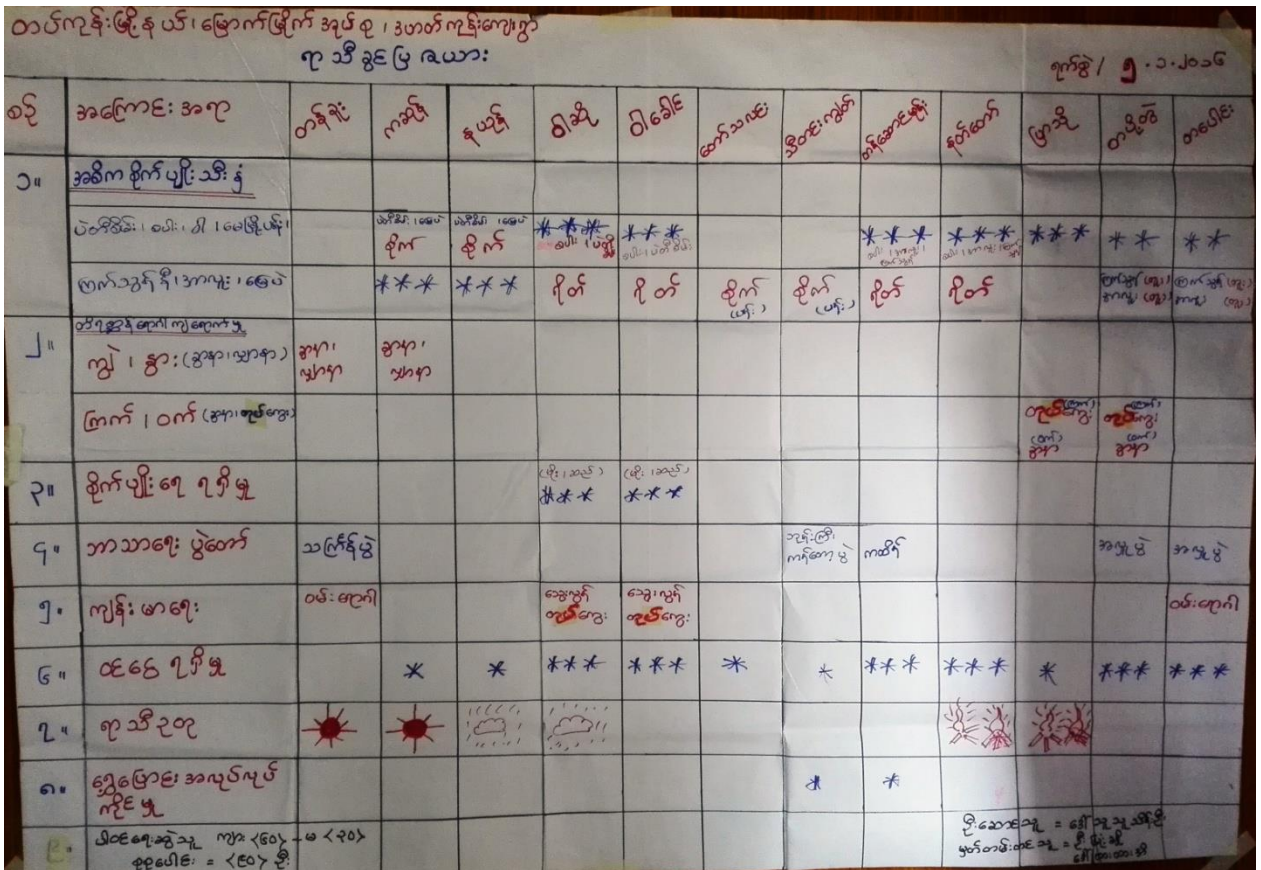 တပ်ကုန်းမြို့နယ်၊ မြောက်မြိုက်အုပ်စု၊ ဒဟတ်ကုန်းကျေးရွာ
ရာသီခွင်ပြဇယား
ရက်စွဲ / ၅.၁.၂၀၁၆
စဉ် အကြောင်းအရာ တန်ခူး ကဆုန် နယုန် ဝါဆို ဝါခေါင် တော်သလင်း သီတင်းကျွတ် တန်ဆောင်မုန်း နတ်တော် ပြာသို တပို့တွဲ တပေါင်း
၁။ အဓိကစိုက်ပျိုးသီးနှံ
ပဲတီစိမ်း၊ စပါး၊ ဝါ၊ မေမြို့ပန်း၊ ပဲတီစိမ်း၊ မြေပဲ စိုက် ပဲတီစိမ်း၊ မြေပဲ စိုက် *** *** စပါး၊ ပဲတီစိမ်း *** *** *** ** **
ကြက်သွန်နီ၊ အာလူး၊ မြေပဲ *** *** ရိတ် ရိတ် စိုက် (ပန်း) စိုက် (ပန်း) ရိတ် ရိတ် ကြက်သွန် (တူး) အာလူး (တူး) ကြက်သွန် (တူး) အာလူး (တူး)
၂။ တိရစ္ဆာန်ရောဂါကျရောက်မှု
ကျွဲ၊ နွား (ခွာနာ၊ လျှာနာ) ခွာနာ၊ လျှာနာ ခွာနာ၊ လျှာနာ
ကြက်၊ ဝက် (ခွာနာ၊ တုပ်ကွေး) တုပ်ကွေး (ကြက်) (ဝက်) ခွာနာ တုပ်ကွေး (ကြက်) (ဝက်) ခွာနာ
၃။ စိုက်ပျိုးရေရရှိမှု (မိုး၊ ဆည်) *** (မိုး၊ ဆည်) ***
၄။ ဘာသာရေးပွဲတော် သင်္ကြန်ပွဲ ဘုန်းကြီးကန်တော့ပွဲ ကထိန် အလှူပွဲ အလှူပွဲ
၅. ကျန်းမာရေး ဝမ်းရောဂါ သွေးလွန်တုပ်ကွေး သွေးလွန်တုပ်ကွေး ဝမ်းရောဂါ
၆။ ဝင်ငွေရရှိမှု * * *** *** * * *** *** * *** ***
၇။ ရာသီဥတု
၈။ ရွှေ့ပြောင်းအလုပ်လုပ်ကိုင်မှု * *
၉. ပါဝင်ရေးဆွဲသူ ကျား <၆၀> - မ <၃၀>
စုစုပေါင်း = <၉၀> ဦး
ဦးဆောင်သူ =
မှတ်တမ်းတင်သူ =